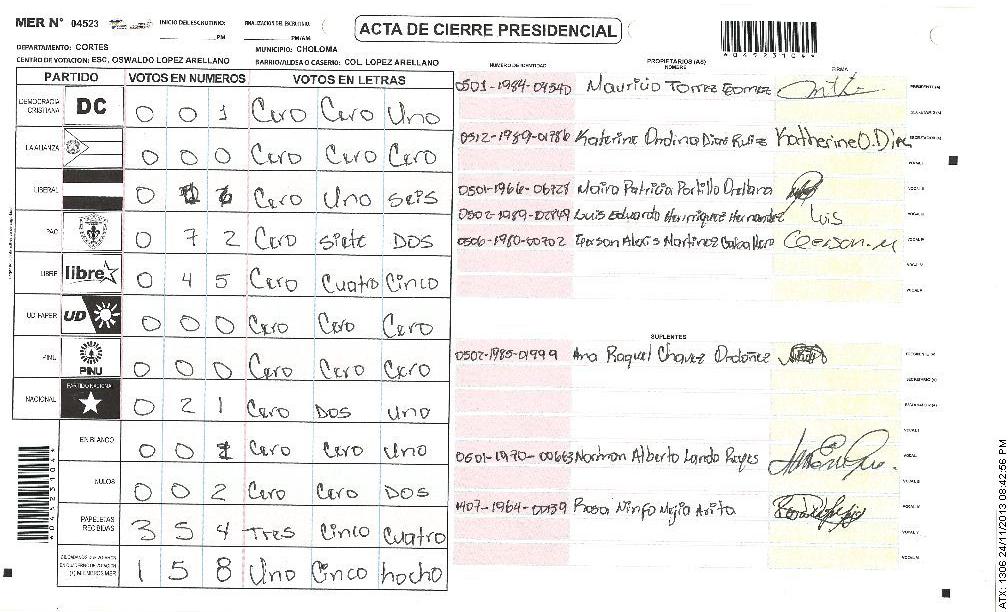 MER N° 04523 INICIO DEL ESCRUTINIO: PM FINALIZACION DEL ESCRUTINIO: PM/AM
ACTA DE CIERRE PRESIDENCIAL
DEPARTAMENTO: CORTES MUNICIPIO: CHOLOMA
CENTRO DE VOTACION: ESC. OSWALDO LOPEZ ARELLANO BARRIO/ALDEA O CASERIO: COL. LOPEZ ARELLANO
PARTIDO VOTOS EN NUMEROS VOTOS EN LETRAS
DEMOCRACIA CRISTIANA DC 0 0 1 Cero Cero Uno
LA ALIANZA 0 0 0 Cero Cero Cero
LIBERAL 0 1 6 Cero Uno seis
PAC 0 7 2 Cero siete DOS
LIBRE libre 0 4 5 Cero Cuatro Cinco
UD FAPER UD 0 0 0 Cero Cero Cero
PINU PINU 0 0 0 Cero Cero Cero
NACIONAL PARTIDO NACIONAL 0 2 1 Cero DOS uno
EN BLANCO 0 0 1 Cero Cero Uno
NULOS 0 0 2 Cero Cero DOS
PAPELETAS RECIBIDAS 3 5 4 Tres Cinco Cuatro
1 5 8 Uno Cinco hocho
NUMERO DE IDENTIDAD PROPIETARIOS (AS) NOMBRE FIRMA
0501-1984-04540 Mauricio Torrez
0512-1989-01786 Katerine Ondina Diaz Ruiz Katherine O. Diaz
0501-1966-06728 Mairo Patricia Portillo Orellana
0502-1989-02849 Luis Eduardo Henriquez Hernandez Luis
0506-1980-00702 Gerson Alexis Martinez Caballero Gerson.M
SUPLENTES
0502-1985-01999 Ana Raquel Chavez Ordoñez
0501-1970-00663 Norman Alberto Lando Reyes
1407-1964-00139 Rosa Ninfo Mejia Arita
*04523104*
ATX: 1306 24/11/2013 08:42:56 PM